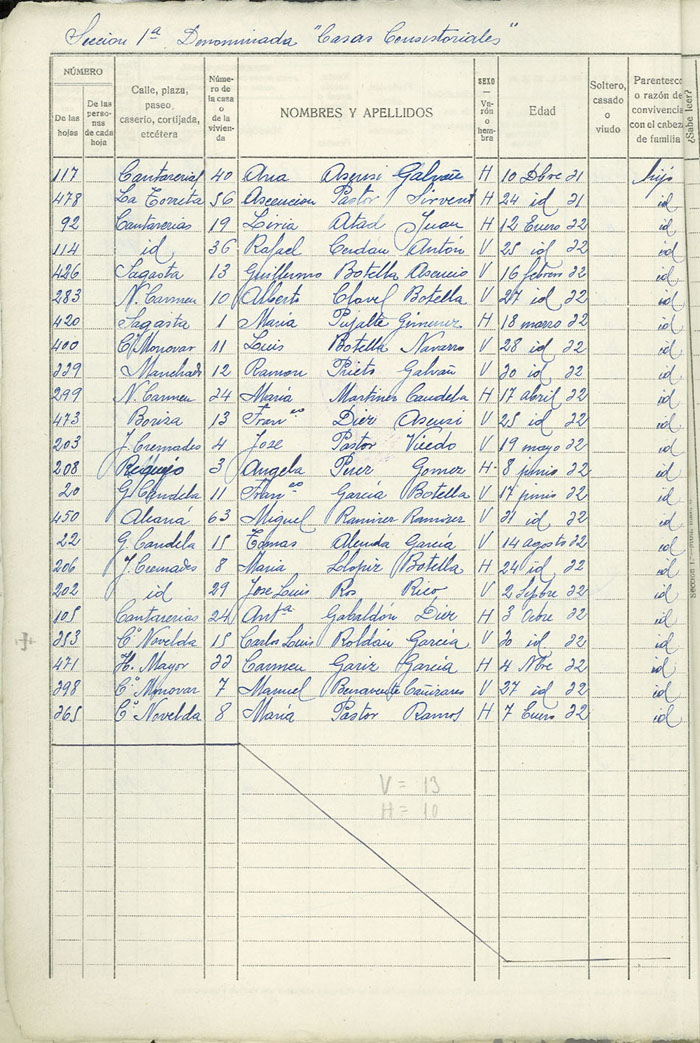 Sección 1ª Denominada "Casas Consistoriales"
NÚMERO
De las hojas
De las personas de cada hoja
Calle, plaza, paseo, caserio, cortijada, etcétera
Número de la casa o de la vivienda
NOMBRES Y APELLIDOS
SEXO Varón o hembra
Edad
Soltero, casado o viudo
Parentesco o razón de convivencia con el cabeza de familia
¿Sabe leer?
117 Cantarerias 40 Ana Asensi Galvañ H 10 Dbre 21 hijo
478 La Torreta 56 Ascencion Pastor Sirvent H 24 id 21 id
92 Cantarerias 19 Liria Atad Juan H 12 Enero 22 id
114 id 36 Rafael Cerdan Antón V 25 id 22 id
426 Sagasta 13 Guillermo Botella Asencio V 16 febrero 22 id
283 N. Carmen 10 Alberto Clavel Botella V 27 id 22 id
420 Sagasta 1 María Pujalte Gimenez H 18 marzo 22 id
400 Cº Monovar 11 Luis Botella Navarro V 28 id 22 id
339 12 Ramon Prieto Galvañ V 30 id 22 id
299 N. Carmen 24 María Martinez Candela H 17 abril 22 id
473 13 Franco Diez Asensi V 25 id 22 id
203 J. Cremades 4 Jose Pastor Vicedo V 19 mayo 22 id
208 3 Angela Perez Gomez H 8 junio 22 id
20 G. Candela 11 Franco García Botella V 17 junio 22 id
450 Alcaná 63 Miguel Ramirez Ramirez V 21 id 22 id
22 G. Candela 15 Tomas Alenda García V 14 agosto 22 id
206 J. Cremades 8 Maria Llopiz Botella H 24 id 22 id
202 id 29 Jose Luis Ros Rico V 2 Sepbre 22 id
105 Cantarerias 24 Antª Gabaldón Diez H 3 Otbre 22 id
353 Cº Novelda 15 Carlos Luis Roldán García V 30 id 22 id
471 H. Mayor 33 Carmen García H 4 Nbre 22 id
398 Cº Monovar 7 Manuel Benavente Cañizares V 27 id 22 id
365 Cº Novelda 8 María Pastor Ramos H 7 Enero 22 id
V = 13
H = 10